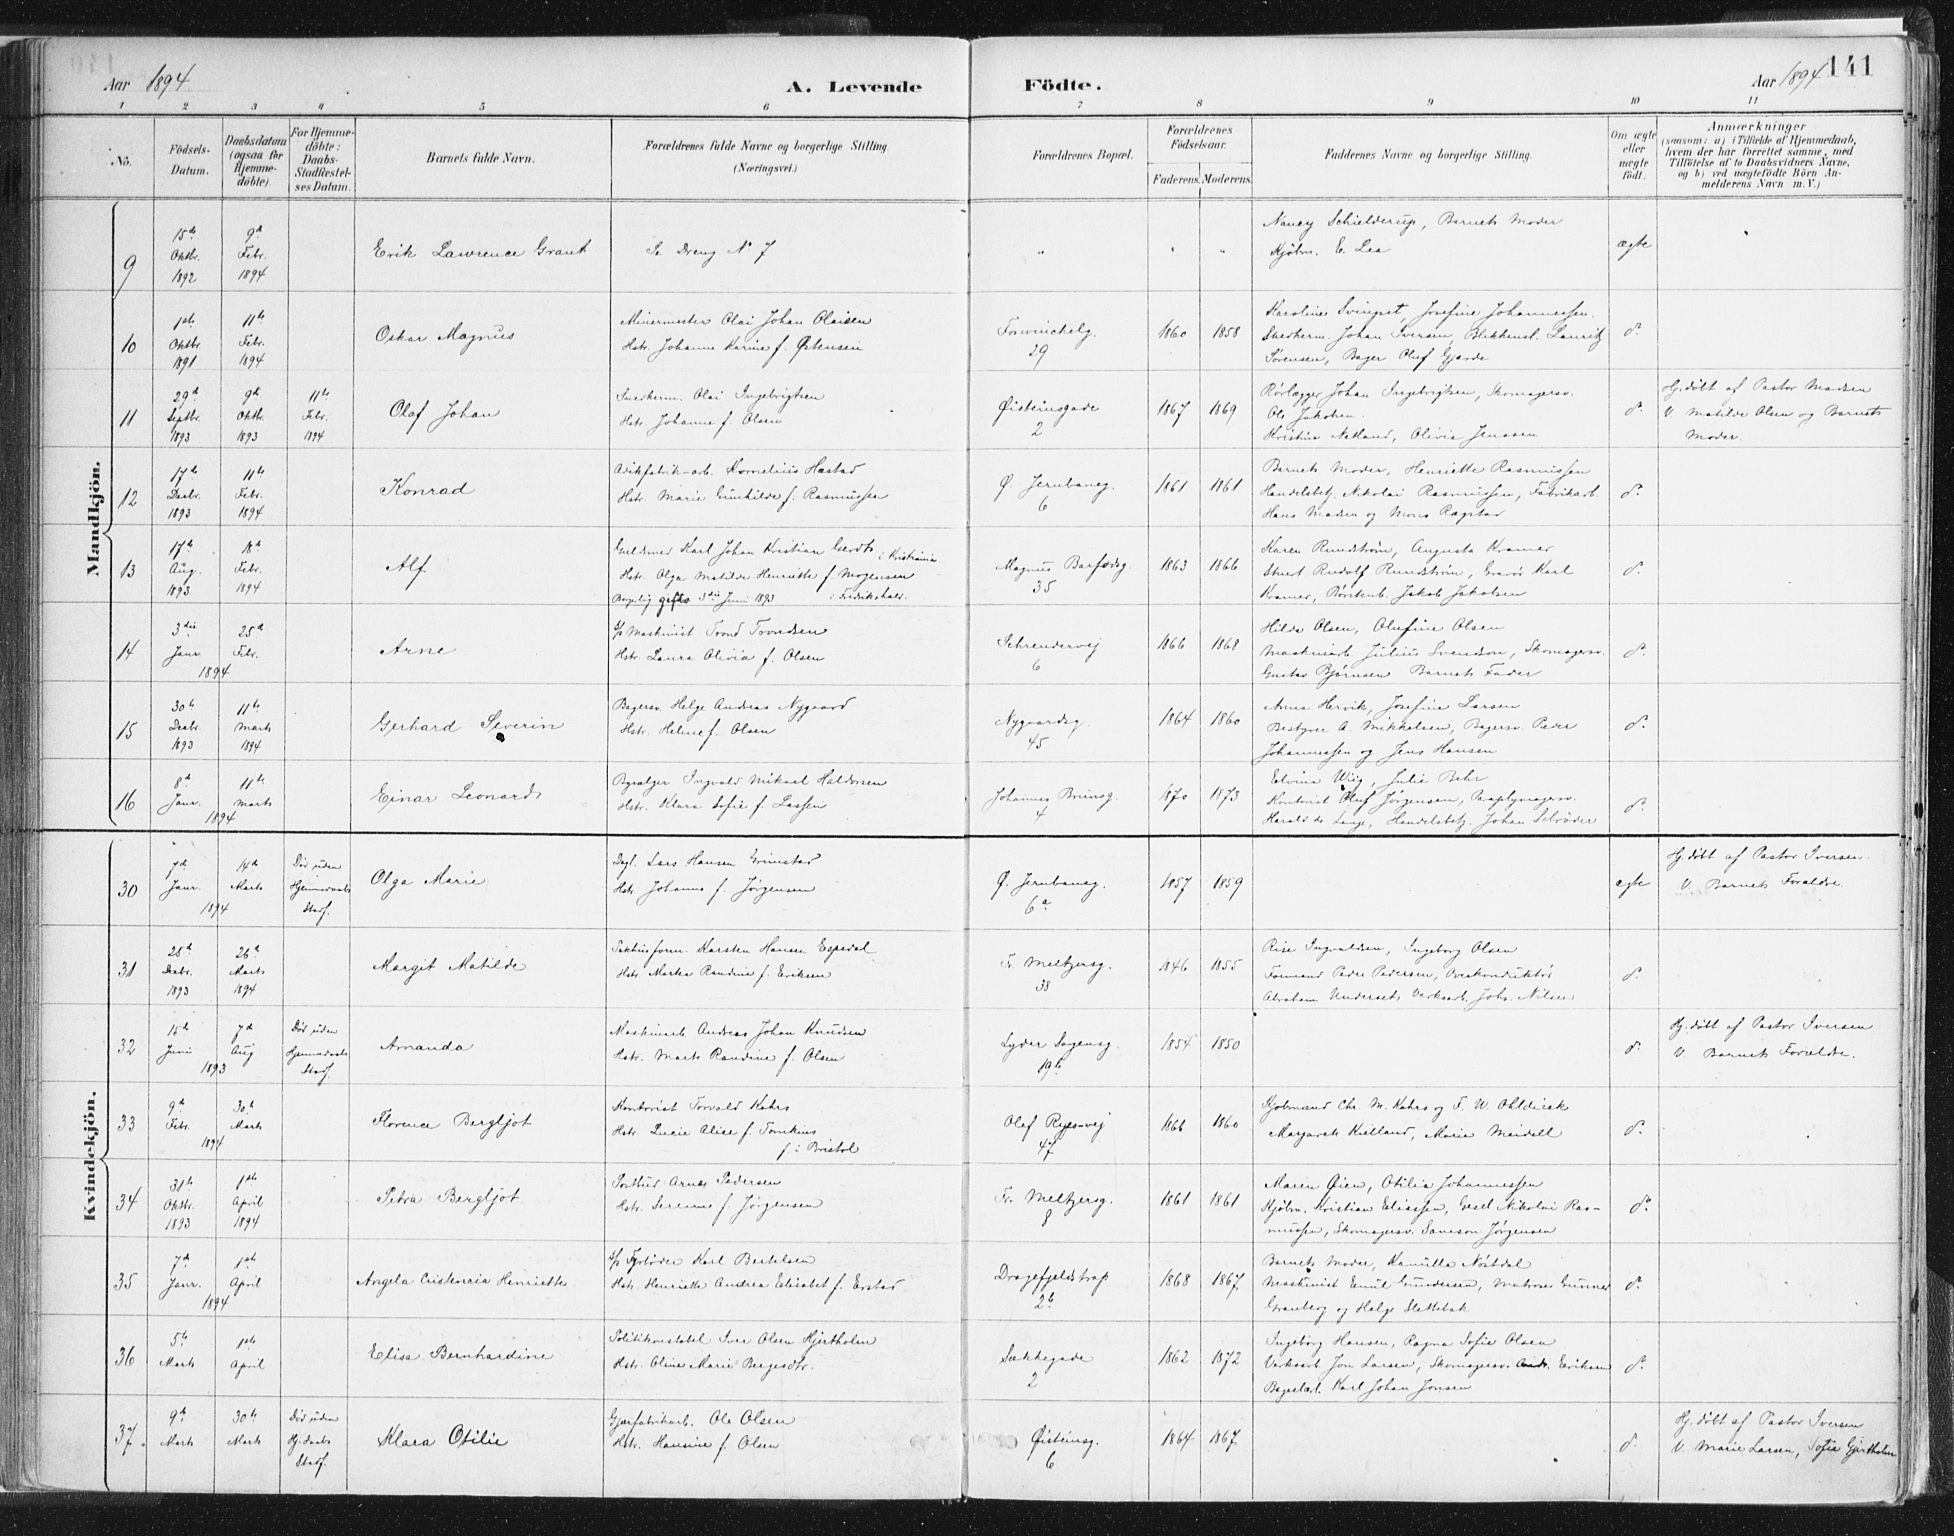 Aar 1894
A. Levende
Födte.
Aar 1894
141
1 2 3 4 5 6 7 8 9 10 11
No.
Födsels-
Datum.
Daabsdatum
(ogsaa for
Hjemme-
döbte)
For Hjemme-
döbte:
Daabs-
Stadfæstel-
ses Datum.
Barnets fulde Navn.
Forældrenes fulde Navne og borgerlige Stilling
(Næringsvei.)
Forældrenes Bopæl.
Forældrenes
Födselsaar.
Faderens. Moderens.
Faddernes Navne og borgerlige Stilling.
Om ægte
eller
uægte
födt.
Anmærkninger
(saasom: a) i Tilfælde af Hjemmedaab,
hvem der har forrettet samme, med
Tilföielse af to Daabsvidners Navne,
og b) ved uægtefödte Börn An-
melderens Navn m. V.)
Mandkjön.
9
15de Oktbr. 1892
9de Febr. 1894
Erik Lawrence Grant
Se Dreng N 7
" " "
Nancy Schielderup, Barnets Moder
Kjøbm. E. Lea
ægte
10
1ste Oktbr. 1891
11te Febr. 1894
Oskar Magnus
Minermester Olai Johan Olaisen
Hstr. Johanna Karine f. Østensen
29
1860 1858
Karoline Svingset, Josefine Johannessen.
Snedkerm. Johan Iversen, Blikkensl. Lauritz
Sørensen, Bager Oluf Gjerde
do.
11
29de Septbr. 1893
9de Oktbr. 1893
11te Febr. 1894
Olaf Johan
Snedkerm. Olai Ingebrigtsen
Hstr. Johanne f. Olsen
Øisteinsgade
2
1867 1869
Rørlægger Johan Ingebrigtsen, Skomagersv.
Ole Jakobsen.
Kristine Netland, Olivia Jenssen
do.
Hj. døbt af Pastor Madsen
V. Matilde Olsen og Barnets
Moder.
12
17de Decbr. 1893
11te Febr. 1894
Konrad
Hstr. Marie Gunhilde f. Rasmussen
Ø. Jernbaneg.
6
1861 1861
Barnets Moder, Henriette Rasmussen
Handelsbetj. Nikolai Rasmussen, Fabrikarb.
Hans Madsen og Mons Ragstad
do.
13
17de Aug. 1893
18de Febr. 1894
Alf
Guldsmed Karl Johan Kristian Gerdts i Kristiania
Hstr. Olga Matilde Henriette f. Mogensen
Borgelig gifte 3die Juni 1893 i Fredrikshald.
Magnus Barfodsg.
35
1863 1866
Karen Rundstrøm, Augusta Kramer
Stuert Rudolf Rundstrøm, Gravør Karl
Kramer, Børstenb. Jakob Jakobsen
do.
14
3die Janr. 1894
25de Febr.
Arne
S/s Maskinist Trond Trondsen
Hstr. Laura Olivia f. Olsen
6
1866 1868
Hilda Olsen, Olufine Olsen
Maskinarb. Julius Svendsen, Skomagersv.
Gustav Bjørnsen Barnets Fader
do.
15
30te Decbr. 1893
11te Marts 1894
Gerhard Severin
Bagersv. Helge Andreas Nygaard
Hstr. Helene f. Olsen
Nygaardsg.
45
1864 1860
Anna Hervik, Josefine Larsen
Bestyrer A. Mikkelsen, Bagersv. Peder
Johannessen og Jens Hansen
do.
16
8de Janr. 1894
11te Marts
Einar Leonard
Bysælger Ingvald Mikael Haldorsen
Hstr. Klara Sofie f. Lassen
Johannes Brunsg.
4
1870 1873
Elvina Wiig, Julie Behr
Kontorist Oluf Jørgensen, Paraplymagersv.
Harald de Lange, Handelsbetj. Johan Schrøder
do.
Kvindekjön.
30
7de Janr. 1894
14de Marts
Død uden
Hjemmedaabs
Stadf.
Olga Marie
Dagl. Lars Hansen Grimstad
Hstr. Johanna f. Jørgensen
Ø. Jernbaneg.
6a
1857 1859
ægte
Hj. døbt af Pastor Iversen.
V. Barnets Forældre.
31
25de Decbr. 1893
26de Marts 1894
Margit Matilde
Pakhusform. Karsten Hansen Espedal
Hstr. Marta Randine f. Eriksen
Fr. Meltzersg.
38
1846 1855
Ingvaldsen, Ingeborg Olsen
Formand Peder Pedersen, Overkonduktør
Abraham Undersets Verksarb. Johs. Nilsen
do.
32
15de Juni 1893
7de Aug
Død uden
Hjemmedaabs
Stadf.
Amanda
Maskinarb. Andreas Johan Knudsen
Hstr. Marta Randine f. Olsen
Lyder Sagensg.
19b
1854 1850
do.
Hj. døbt af Pastor Iversen
V. Barnets Forældre.
33
9de Febr. 1894
30te Marts
Florence Bergljot
Kontorist Torvald Kahrs
Hstr. Lucie Alice f. Tomkins
f. i Bristol
Olaf Ryesvej
47
1866 1860
Kjøbmænd Chr. M. Kahrs og F. W. Ohldieck
Margareth Kielland, Marie Meidell
do.
34
31te Oktbr. 1893
1ste April 1894
Petra Bergljot
Postbud Arne Pedersen
Hstr. Serine f. Jørgensen
Fr. Meltzersg.
8
1861 1861
Maren Øien, Otilia Johannessen
Kjøbm. Kristian Eliassen, Gesel Nikolai Ras-
mussen, Skomagersv. Samson Jørgensen
do.
35
7de Janr. 1894
1ste April
Angela Cristencia Henriette
S/s Fyrbøder Karl Bertelsen
Hstr. Henriette Andrea Elisabet f. Erstad
Dragefjeldstrap
2b
1868 1867
Barnets Moder, Kamilla Nøstdal
Maskinist Emil Gundersen, Matroser Gunner
Granberg og Helge Slettebak
do.
36
5te Marts
1ste April
Elisa Bernhardine
Politikonstabel Iver Olsen Hjertholm
Hstr. Oline Marie Bergesdtr.
Sækkegade
2
1862 1872
Ingeborg Hansen, Ragna Sofie Olsen
Verksarb. Jon Larsen, Skomagersv. Andr. Eriksen
Bagerlærl. Karl Johan Jonsen
do.
37.
9de Marts
30te Marts
Død uden
Hj. daabs
Stadf.
Klara Otilie
Gjærfabrikarb. Ole Olsen
Hstr. Hansine f. Olsen
Øisteinsg.
6
1864 1867
do.
Hj. døbt af Pastor Iversen
V. Marie Larsen, Sofia Gjertholm